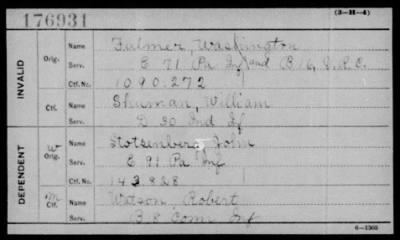 176931
(3-H-4)
INVALID
Orig.
Name Fulmer, Washington
Serv. E 71 Pa Inf and B 16, V.R.C.
Ctf. No. 1090.272
Ctf.
Name Shuman, William
Serv. D 30 Ind Inf
DEPENDENT
W
Orig.
Name Stotsenberg, John
Serv. E 91 Pa Inf
Ctf. No. 142.828
M
Ctf.
Name Watson, Robert
Serv. B 8 Conn Inf
6-1305